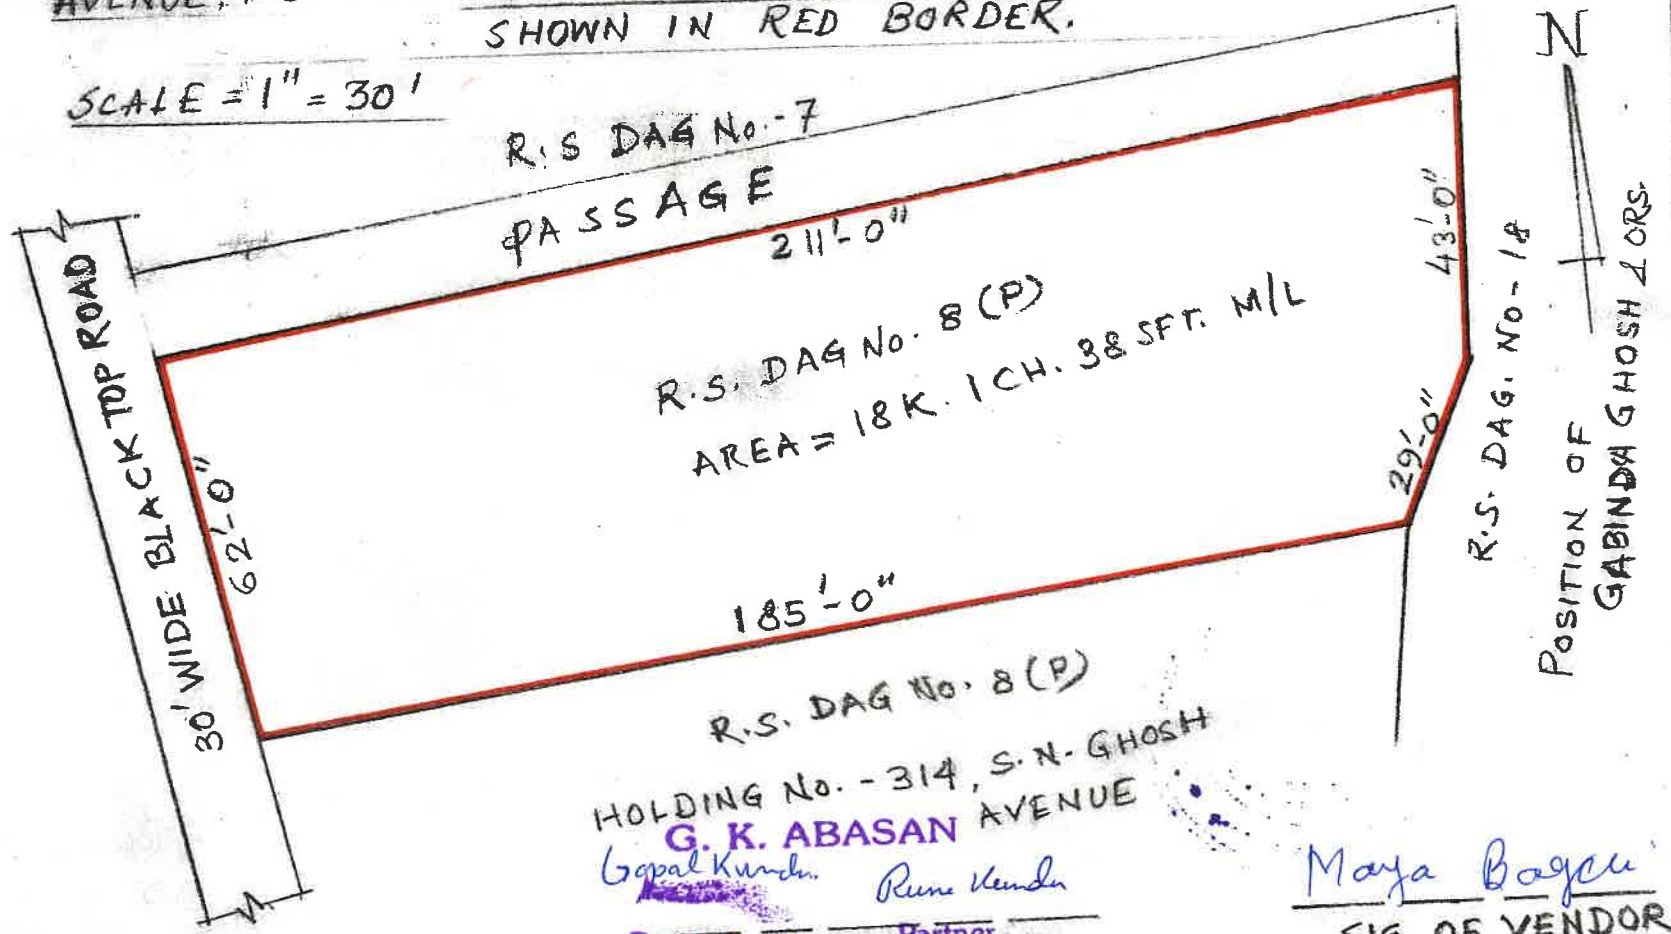 AVENUE,
SHOWN IN RED BORDER.
SCALE = 1" = 30'
N
R.S DAG No.-7
PASSAGE
211'-0"
30' WIDE BLACK TOP ROAD
62'-0"
R.S. DAG No. 8 (P)
AREA = 18 K. 1 CH. 38 SFT. M/L
43'-0"
29'-0"
R.S. DAG. No-18
POSITION OF
GABINDA GHOSH & ORS.
185'-0"
R.S. DAG No. 8 (P)
HOLDING No. - 314, S.N. GHOSH
AVENUE
G. K. ABASAN
Gopal Kundu
Rune Kundu
Partner
Maya Bagchi
SIG. OF VENDOR